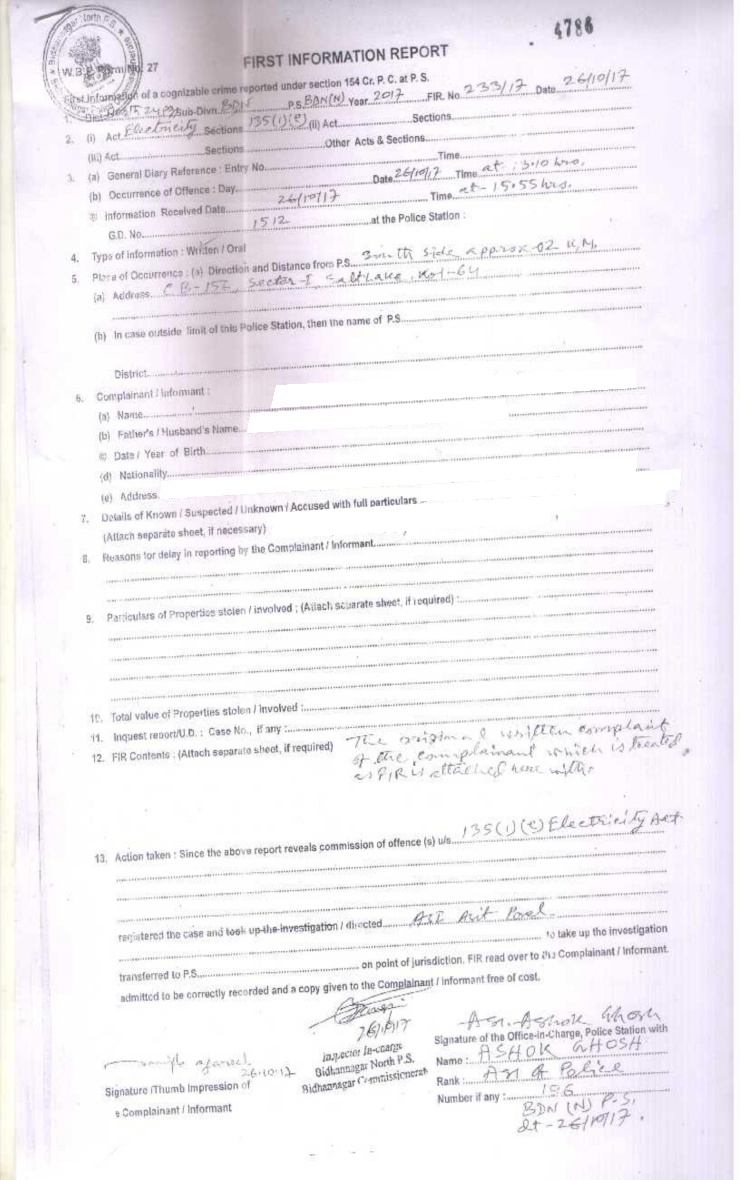 4786
Bidhannagar North P.S.
W.B.P. Form No. 27
FIRST INFORMATION REPORT
First Information of a cognizable crime reported under section 154 Cr. P. C. at P. S.
1. Dist. 24 Pgs Sub-Divn. BDN P.S. BDN(N) Year 2017 FIR. No. 233/17 Date 26/10/17
2. (i) Act Electricity Sections 135(1)(e) (ii) Act Sections
(iii) Act Sections Other Acts & Sections
3. (a) General Diary Reference : Entry No. Time
(b) Occurrence of Offence : Day Date 26/10/17 Time at 3.10 hrs.
© Information Received Date 26/10/17 Time at-15.55 hrs.
G.D. No. 1512 at the Police Station :
4. Type of information : Written / Oral
5. Place of Occurrence : (a) Direction and Distance from P.S. South side approx-02 K.M.
(a) Address CB-157, Sector-I, Salt Lake, Kol-64
(b) In case outside limit of this Police Station, then the name of P.S.
District
6. Complainant / Informant :
(a) Name
(b) Father's / Husband's Name
© Date / Year of Birth
(d) Nationality
(e) Address
7. Details of Known / Suspected / Unknown / Accused with full particulars
(Attach separate sheet, if necessary)
8. Reasons for delay in reporting by the Complainant / Informant
9. Particulars of Properties stolen / involved ; (Attach separate sheet, if required) :
10. Total value of Properties stolen / Involved :
11. Inquest report/U.D. : Case No., if any :
12. FIR Contents : (Attach separate sheet, if required) The original written complaint
of the complainant which is treated
as FIR is attached here with.
13. Action taken : Since the above report reveals commission of offence (s) u/s 135(1)(e) Electricity Act
registered the case and took up the investigation / directed ASI Asit
to take up the investigation
transferred to P.S. on point of jurisdiction. FIR read over to the Complainant / Informant.
admitted to be correctly recorded and a copy given to the Complainant / informant free of cost.
26/10/17
Inspector In-charge
Bidhannagar North P.S.
Bidhannagar Commissionerate
26.10.17
Signature /Thumb Impression of
e Complainant / Informant
ASI. Ashok Ghosh
Signature of the Office-in-Charge, Police Station with
Name : ASHOK GHOSH
Rank : ASI of Police
Number if any : 186
BDN (N) P.S.
dt-26/10/17.